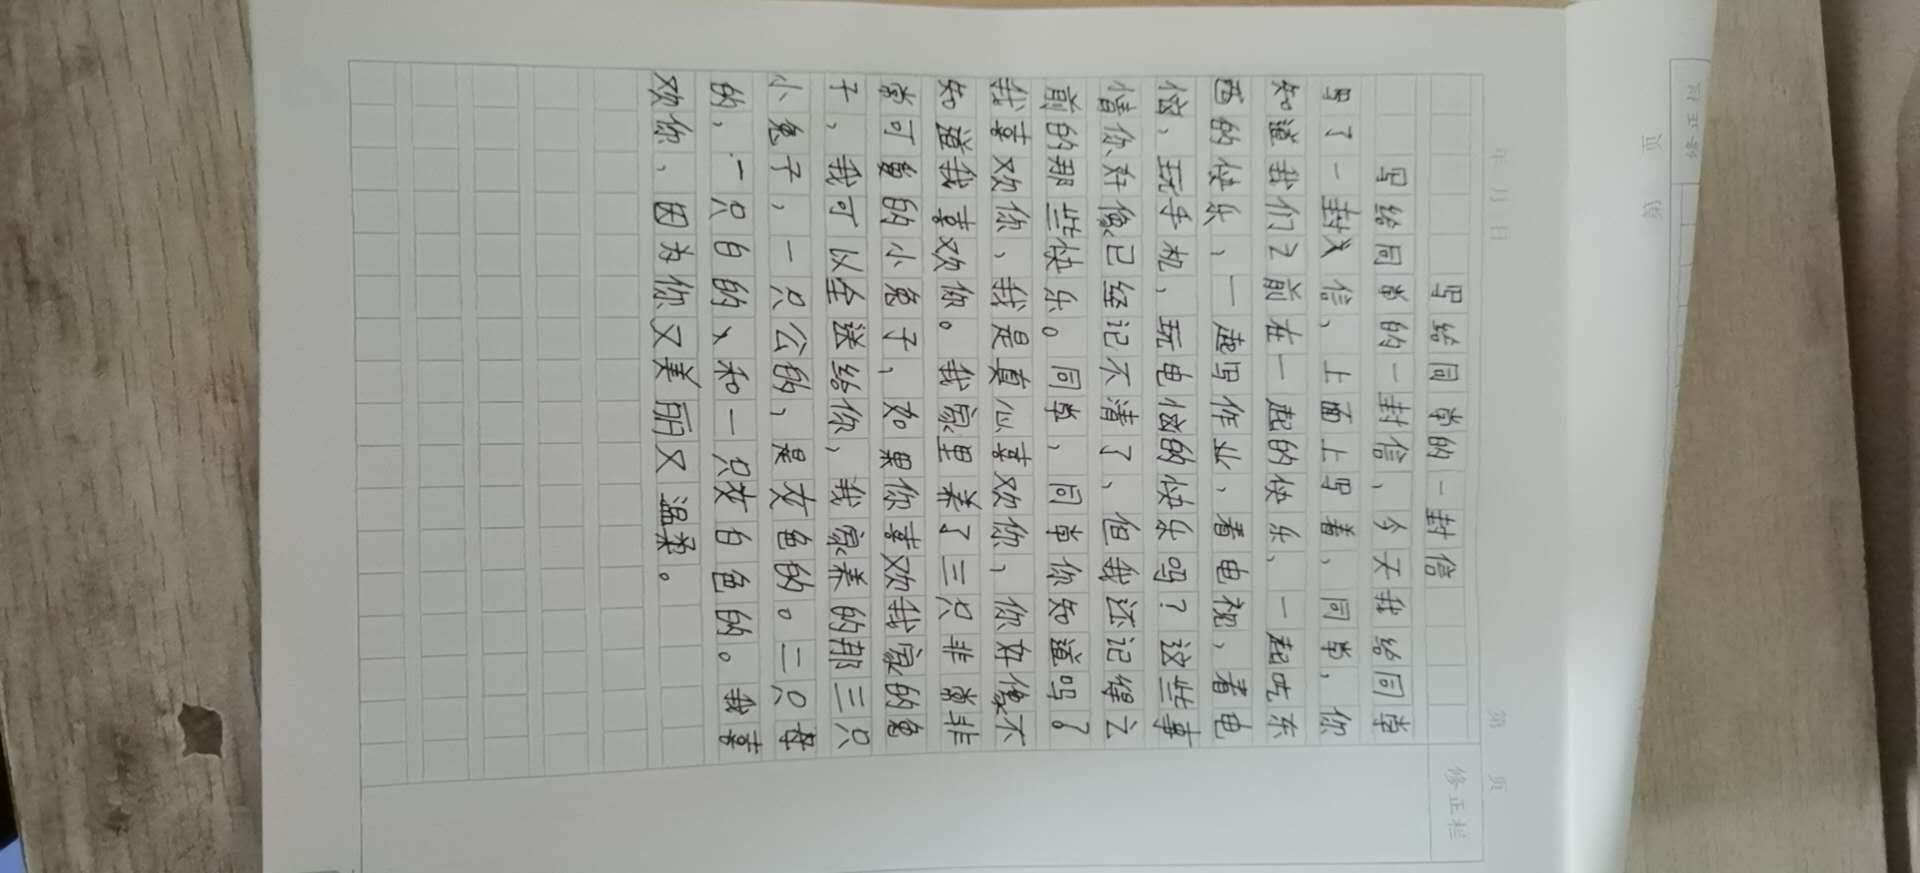 写给同学的一封信
写给同学的一封信,今天我给同学
写了一封信,上面上写着,同学,你
知道我们之前在一起的快乐,一起吃东
西的快乐,一起写作业,看电视,看电
脑,玩手机,玩电脑的快乐吗?这些事
情你好像已经记不清了,但我还记得之
前的那些快乐。同学,同学你知道吗?
我喜欢你,我是真心喜欢你,你好像不
知道我喜欢你。我家里养了三只非常非
常可爱的小兔子,如果你喜欢我家的兔
子,我可以全送给你,我家养的那三只
小兔子,一只公的,是灰色的。二只母
的,一只白的,和一只灰白色的。我喜
欢你,因为你又美丽又温柔。
年 月 日
第 页
修正栏
第 页
修正栏